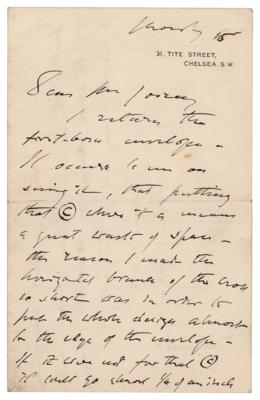 31, TITE STREET,
CHELSEA. S.W.
Dear Mr
I return the
first-born envelope -
It occurs to me on
seeing it, that putting
that © where it is means
a great waste of space -
the reason I made the
horizontal branch of the cross
so short was in order to
push the whole design almost
to the edge of the envelope -
If it were not for that ©
it could go almost ¼ of an inch